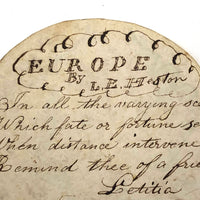 EUROPE
By
L.E. Heston
In all the varying sce
Which fate or fortune se
When distance intervene
Remind thee of a frie
Letitia